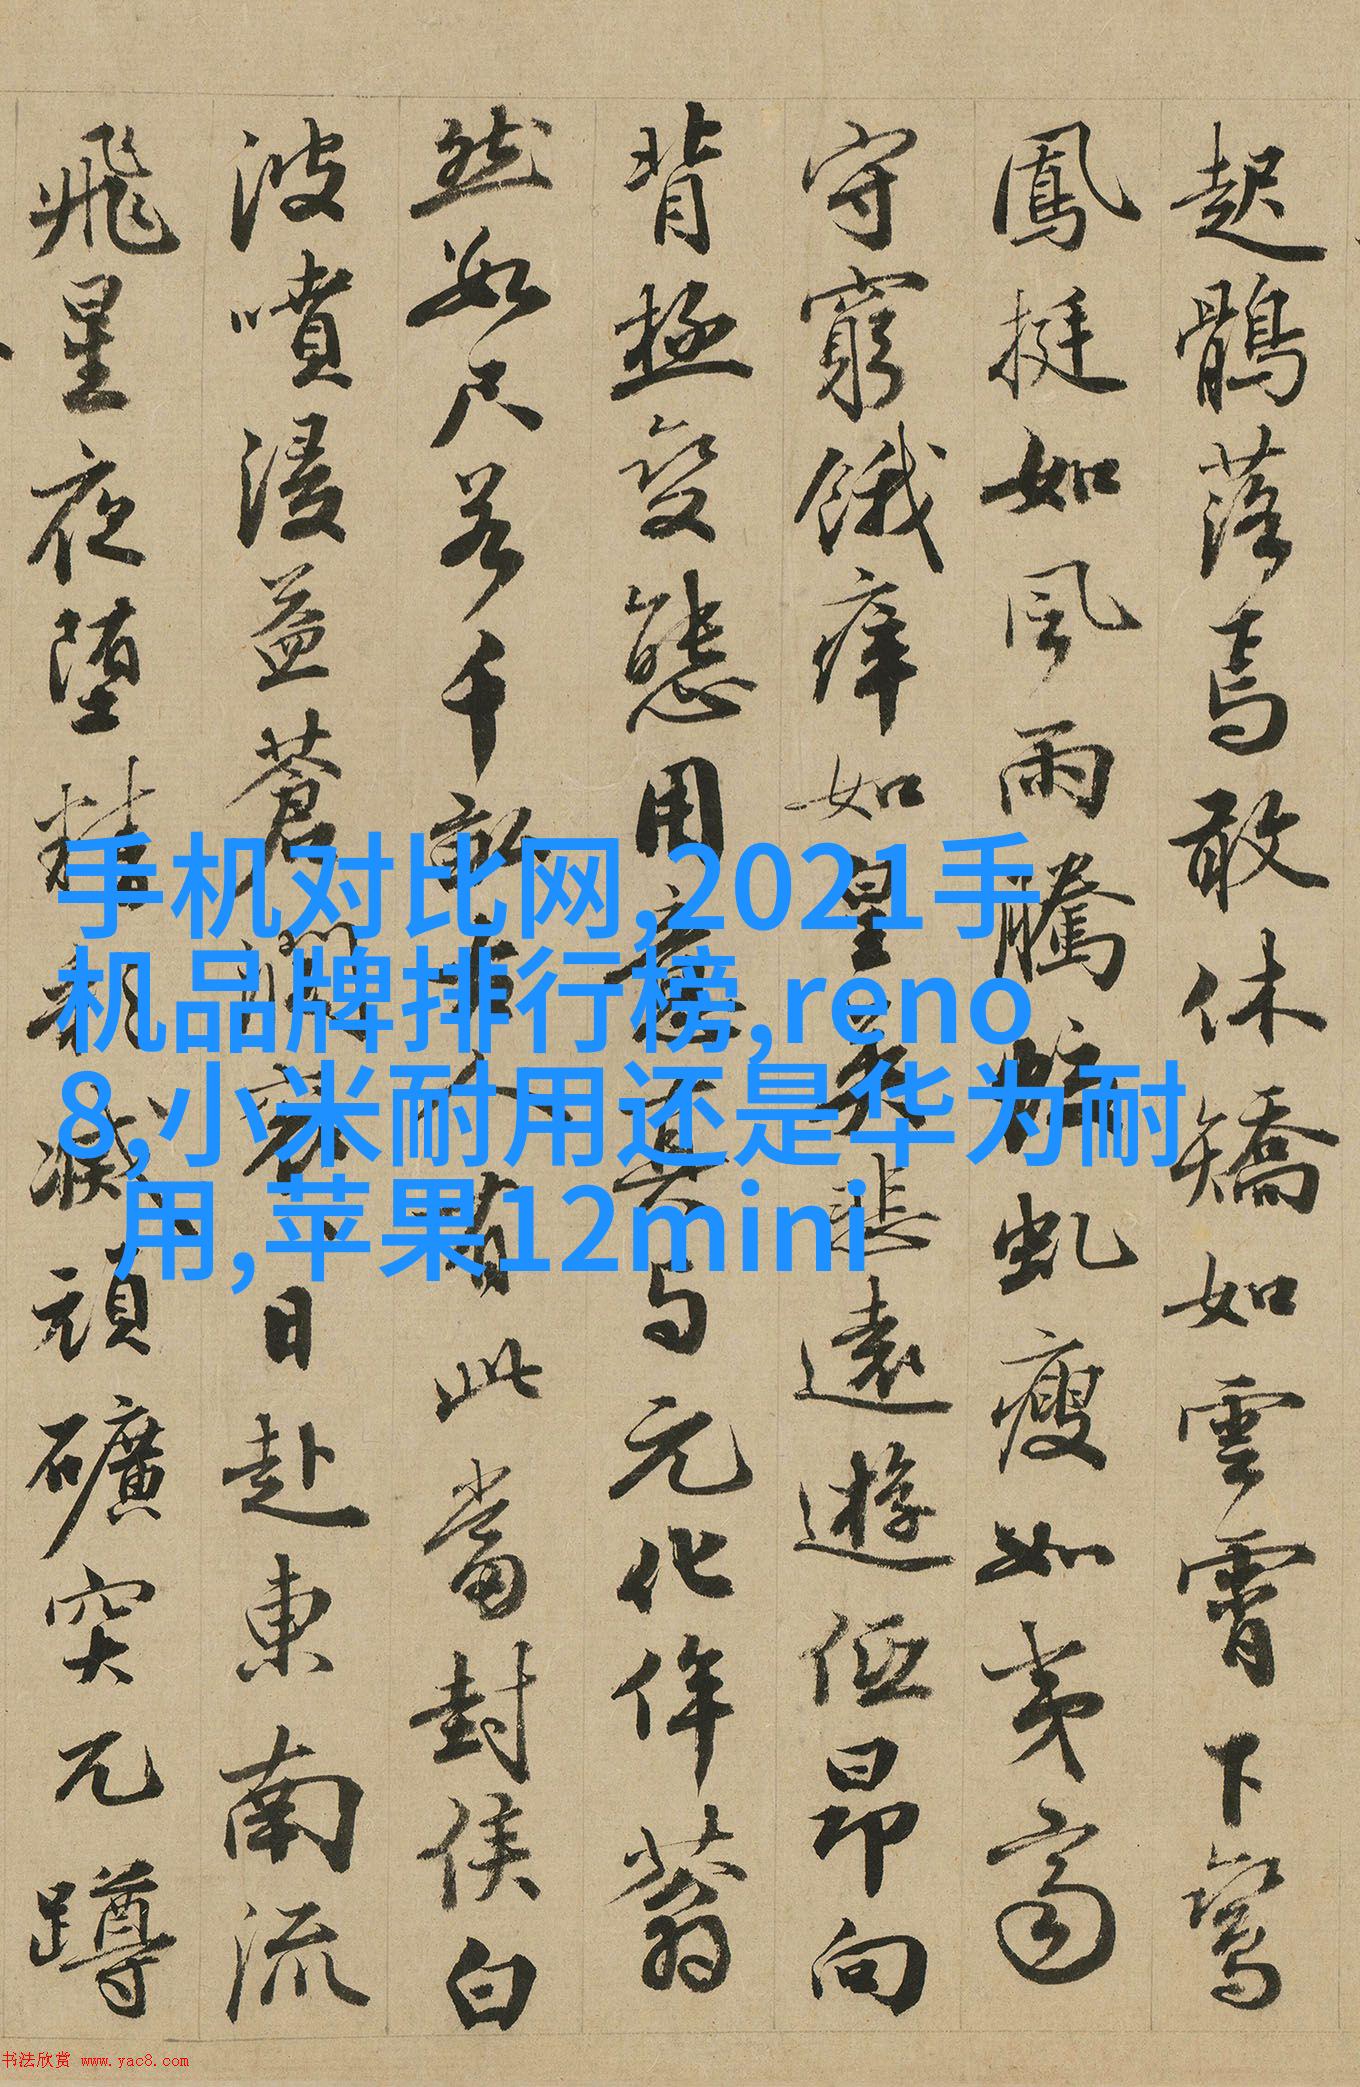 起鶻落焉敢休矯如雲霄下鸞
鳳挺如風雨騰虬瘦如夷齊
守窮餓如皇悲遠遊低昂向
背極變態用意與元化侔
然數尺若千畝人有此當封侯白
波噴浸益蒼日赴東南流
飛星夜堕精減頑礦突兀蹲
手机对比网,2021手
机品牌排行榜,reno
8,小米耐用还是华为耐
用,苹果12mini
书法欣赏 www.yac8.com